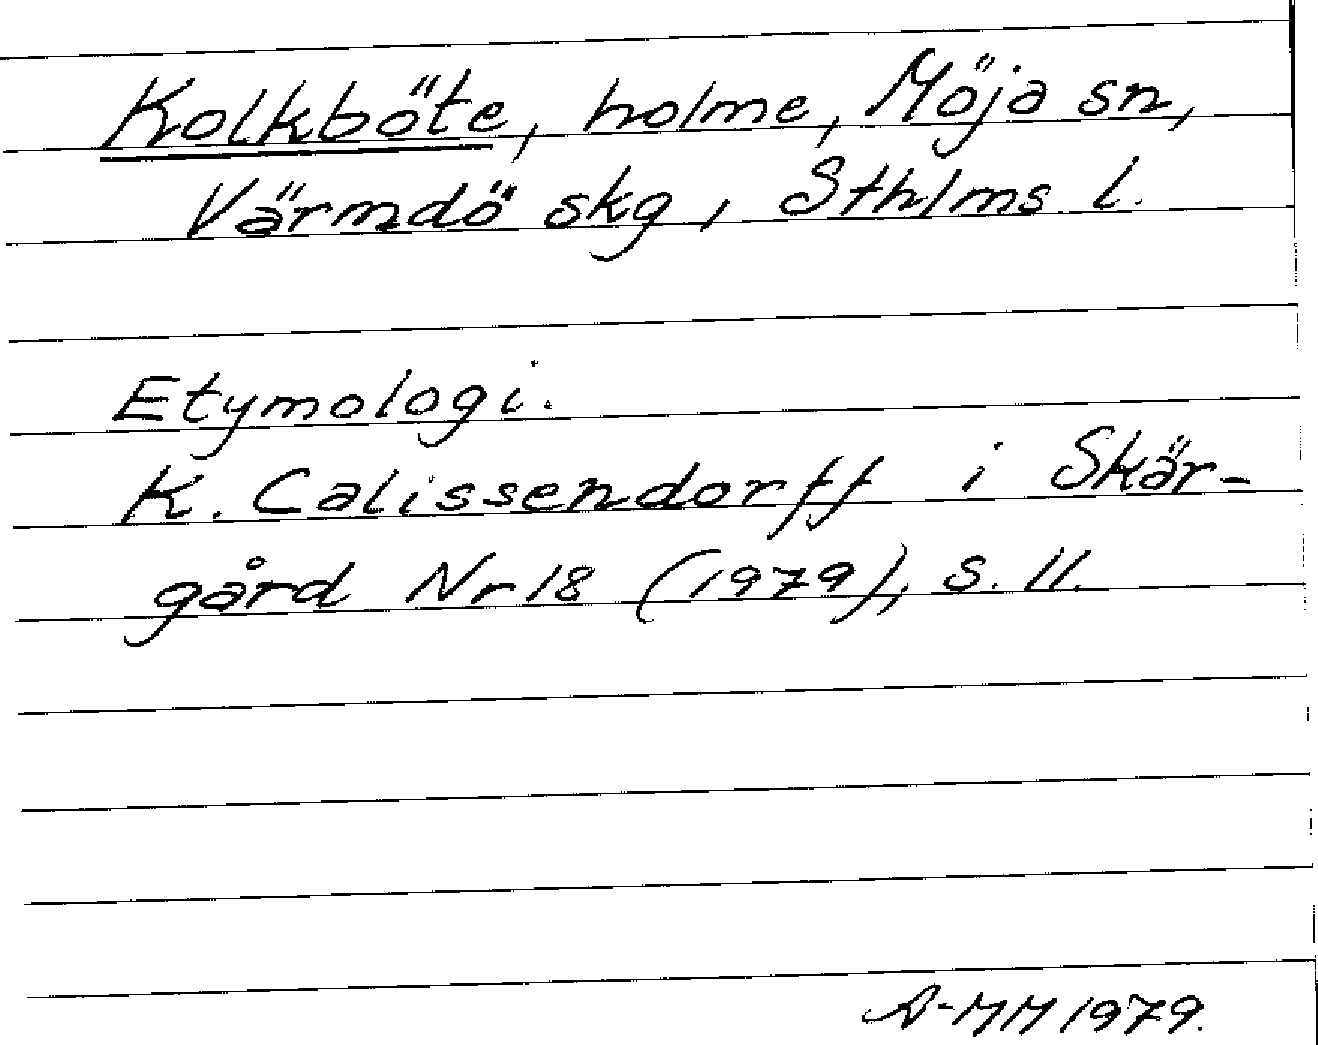 Kolkböte, holme, Möja sn,
Värmdö skg, Sthlms l.
Etymologi.
K. Calissendorff i Skär-
gård Nr 18 (1979), s. 11.
A-MM 1979.